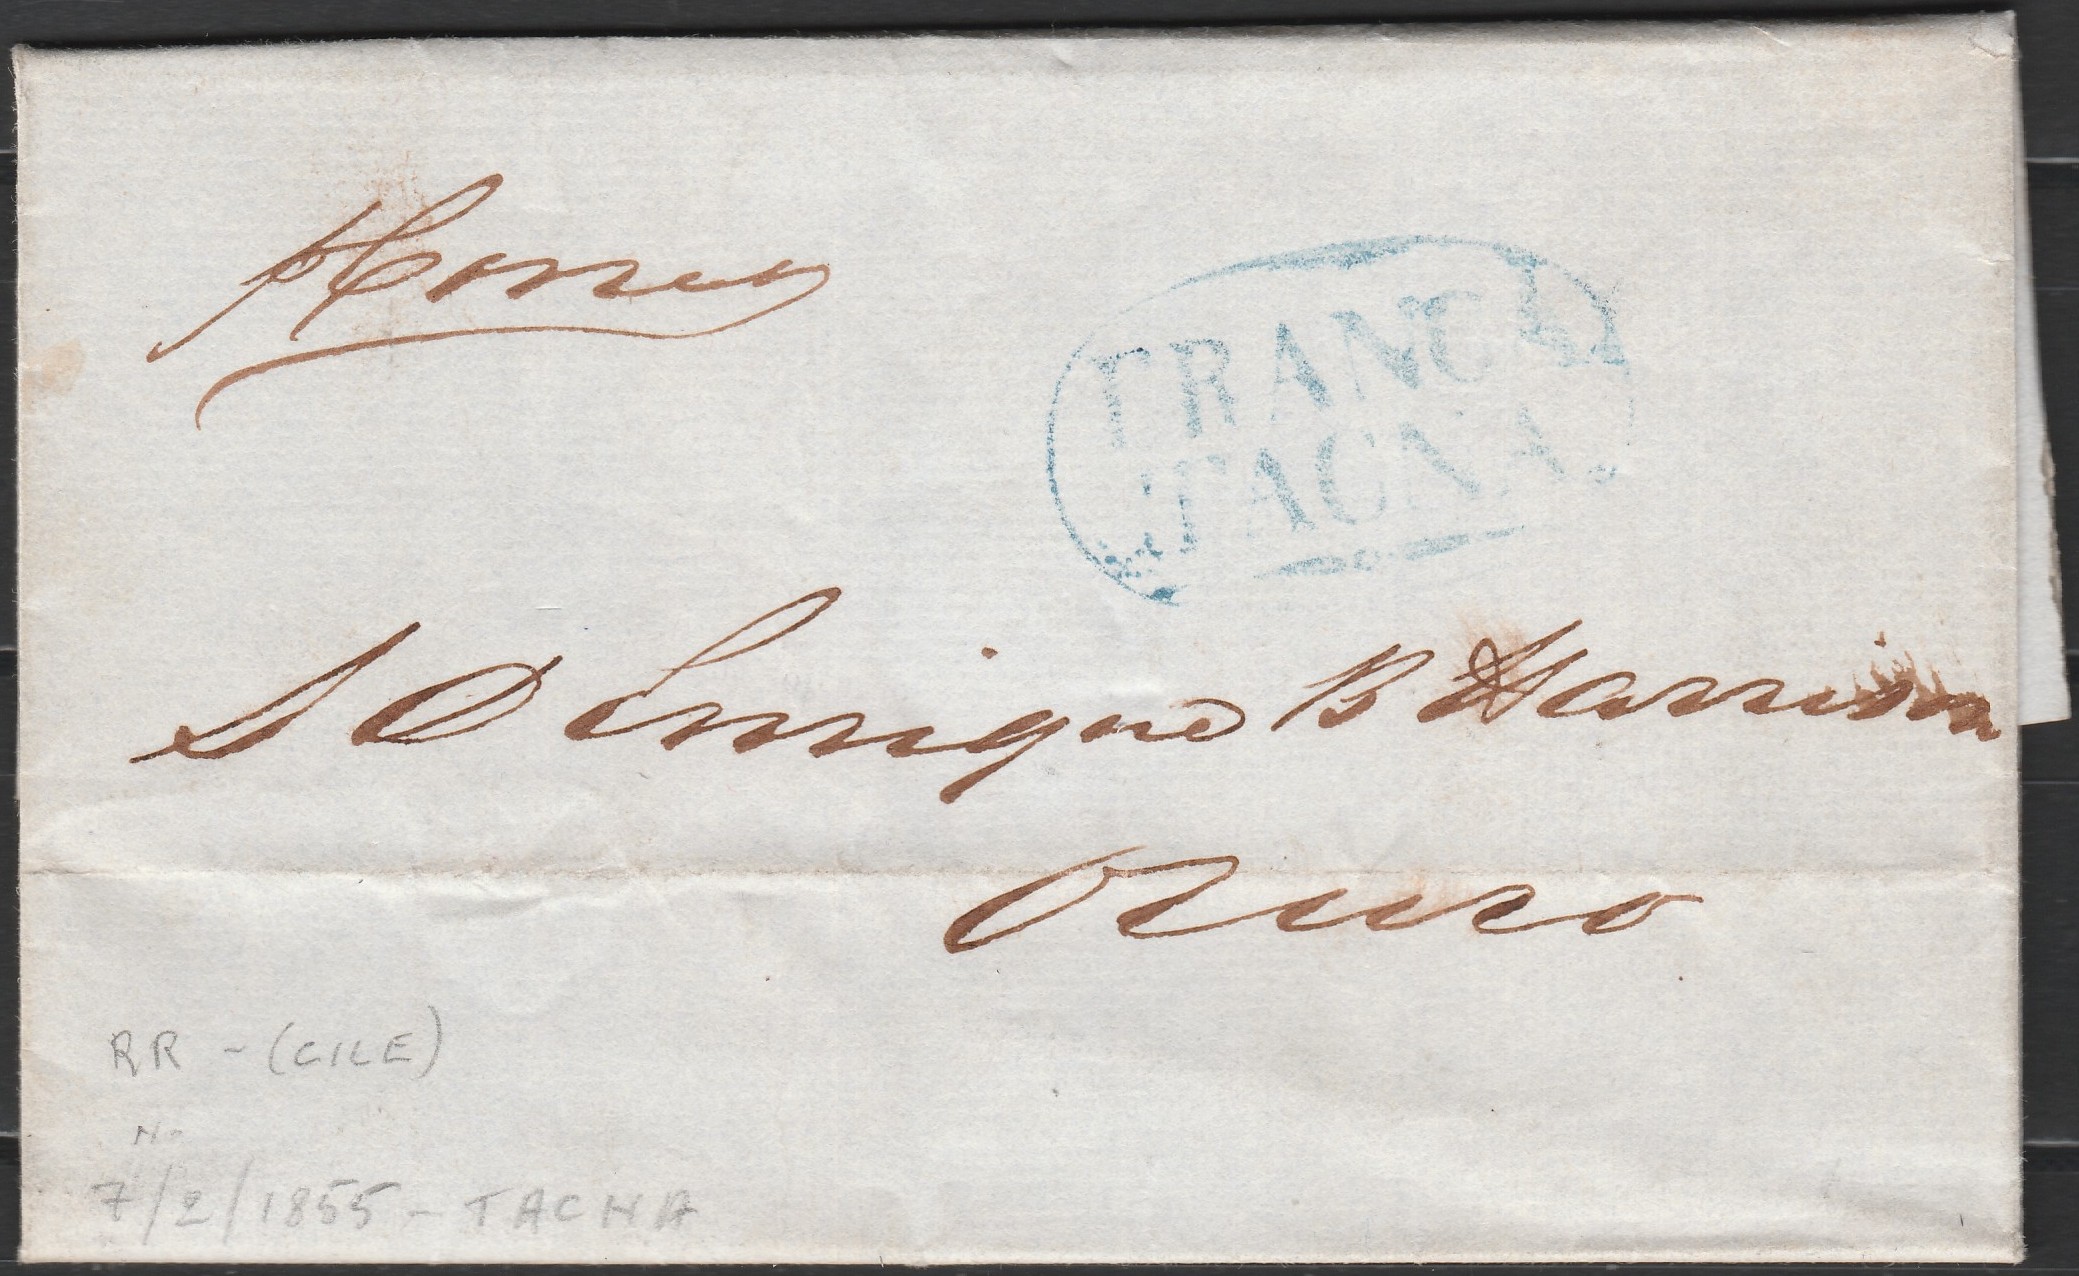 pr Correo
FRANCA
TACNA.
S D Enrique B Harrison
Oruro
RR - (CILE)
N-
7/2/1855 - TACNA